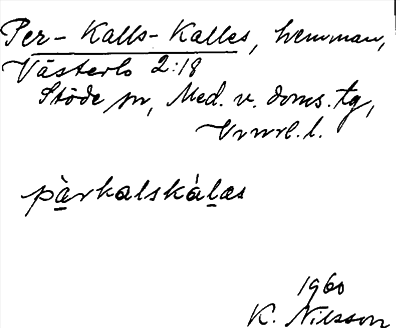 Per-Kalls-Kalles, hemman,
Västerlo 2:18
Stöde sn, Med. v. doms. tg,
Vnrl. l.
pàrkalskàlas
1960
K. Nilsson